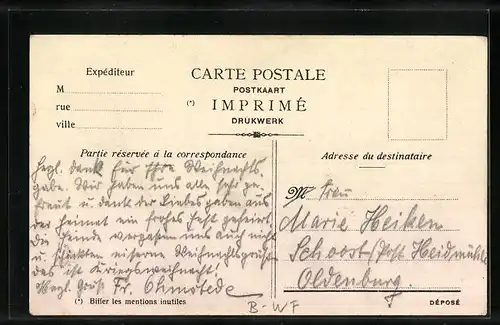 Expéditeur
M
rue
ville
CARTE POSTALE
POSTKAART
(*) IMPRIMÉ
DRUKWERK
Partie réservée à la correspondance
Herzl. Dank für Ihre Weihnachts
gabe. Wir haben uns alle sehr ge-
freut u. dank der Liebesgaben aus
der Heimat ein frohes Fest gefeiert.
Die Feinde vergassen uns auch nicht
u. schickten eiserne Weihnachtsgrüsse
das ist Kriegsweihnacht!
Herzl. Gruß Fr. Ohmstede
(*) Biffer les mentions inutiles
Adresse du destinataire
M Frau
Marie Heiken
Schoort/Post Heidmühle
Oldenburg.
B-WF
DÉPOSÉ